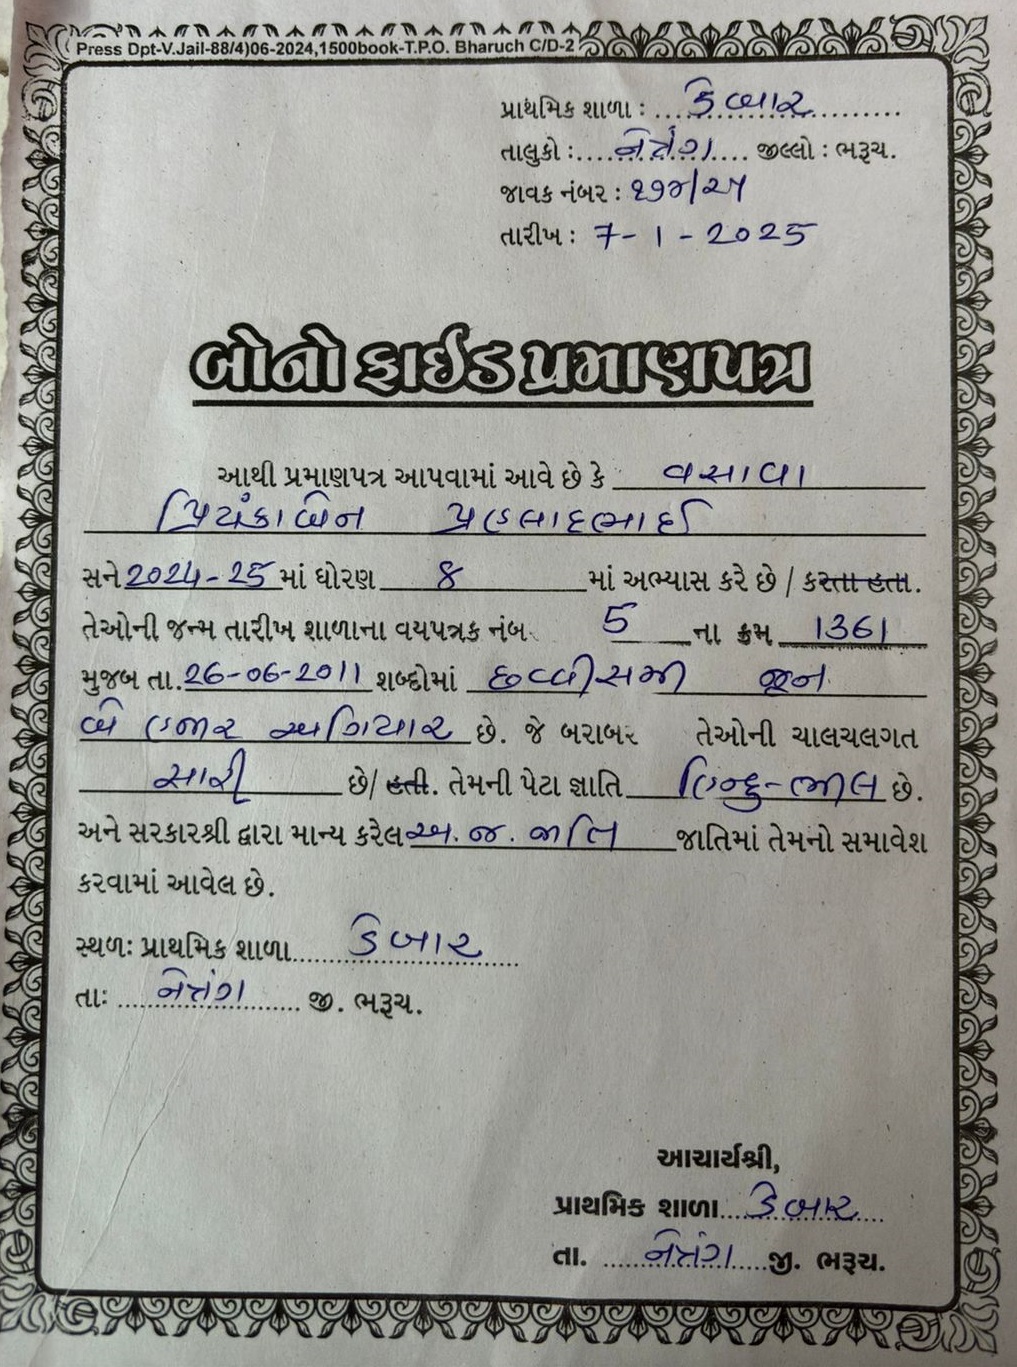 Press Dpt-V.Jail-88/4)06-2024,1500book-T.P.O. Bharuch C/D-2
પ્રાથમિક શાળા : કેબાર
તાલુકો : નેત્રંગ જીલ્લો : ભરૂચ.
જાવક નંબર : ૧૭૪/૨૫
તારીખ : 7-1-2025
બોનો ફાઈડ પ્રમાણપત્ર
આથી પ્રમાણપત્ર આપવામાં આવે છે કે વસાવા
પ્રિયંકાબેન પ્રહલાદભાઈ
સને 2024-25 માં ધોરણ 8 માં અભ્યાસ કરે છે / કરતા હતા.
તેઓની જન્મ તારીખ શાળાના વયપત્રક નંબ 5 ના ક્રમ 1361
મુજબ તા. 26-06-2011 શબ્દોમાં છવ્વીસમી જૂન
બે હજાર અગિયાર છે. જે બરાબર તેઓની ચાલચલગત
સારી છે/ હતી. તેમની પેટા જ્ઞાતિ હિન્દુ-ભીલ છે.
અને સરકારશ્રી દ્વારા માન્ય કરેલ અ.જ.જાતિ જાતિમાં તેમનો સમાવેશ
કરવામાં આવેલ છે.
સ્થળઃ પ્રાથમિક શાળા કેબાર
તાઃ નેત્રંગ જી. ભરૂચ.
આચાર્યશ્રી,
પ્રાથમિક શાળા કેબાર
તા. નેત્રંગ જી. ભરૂચ.